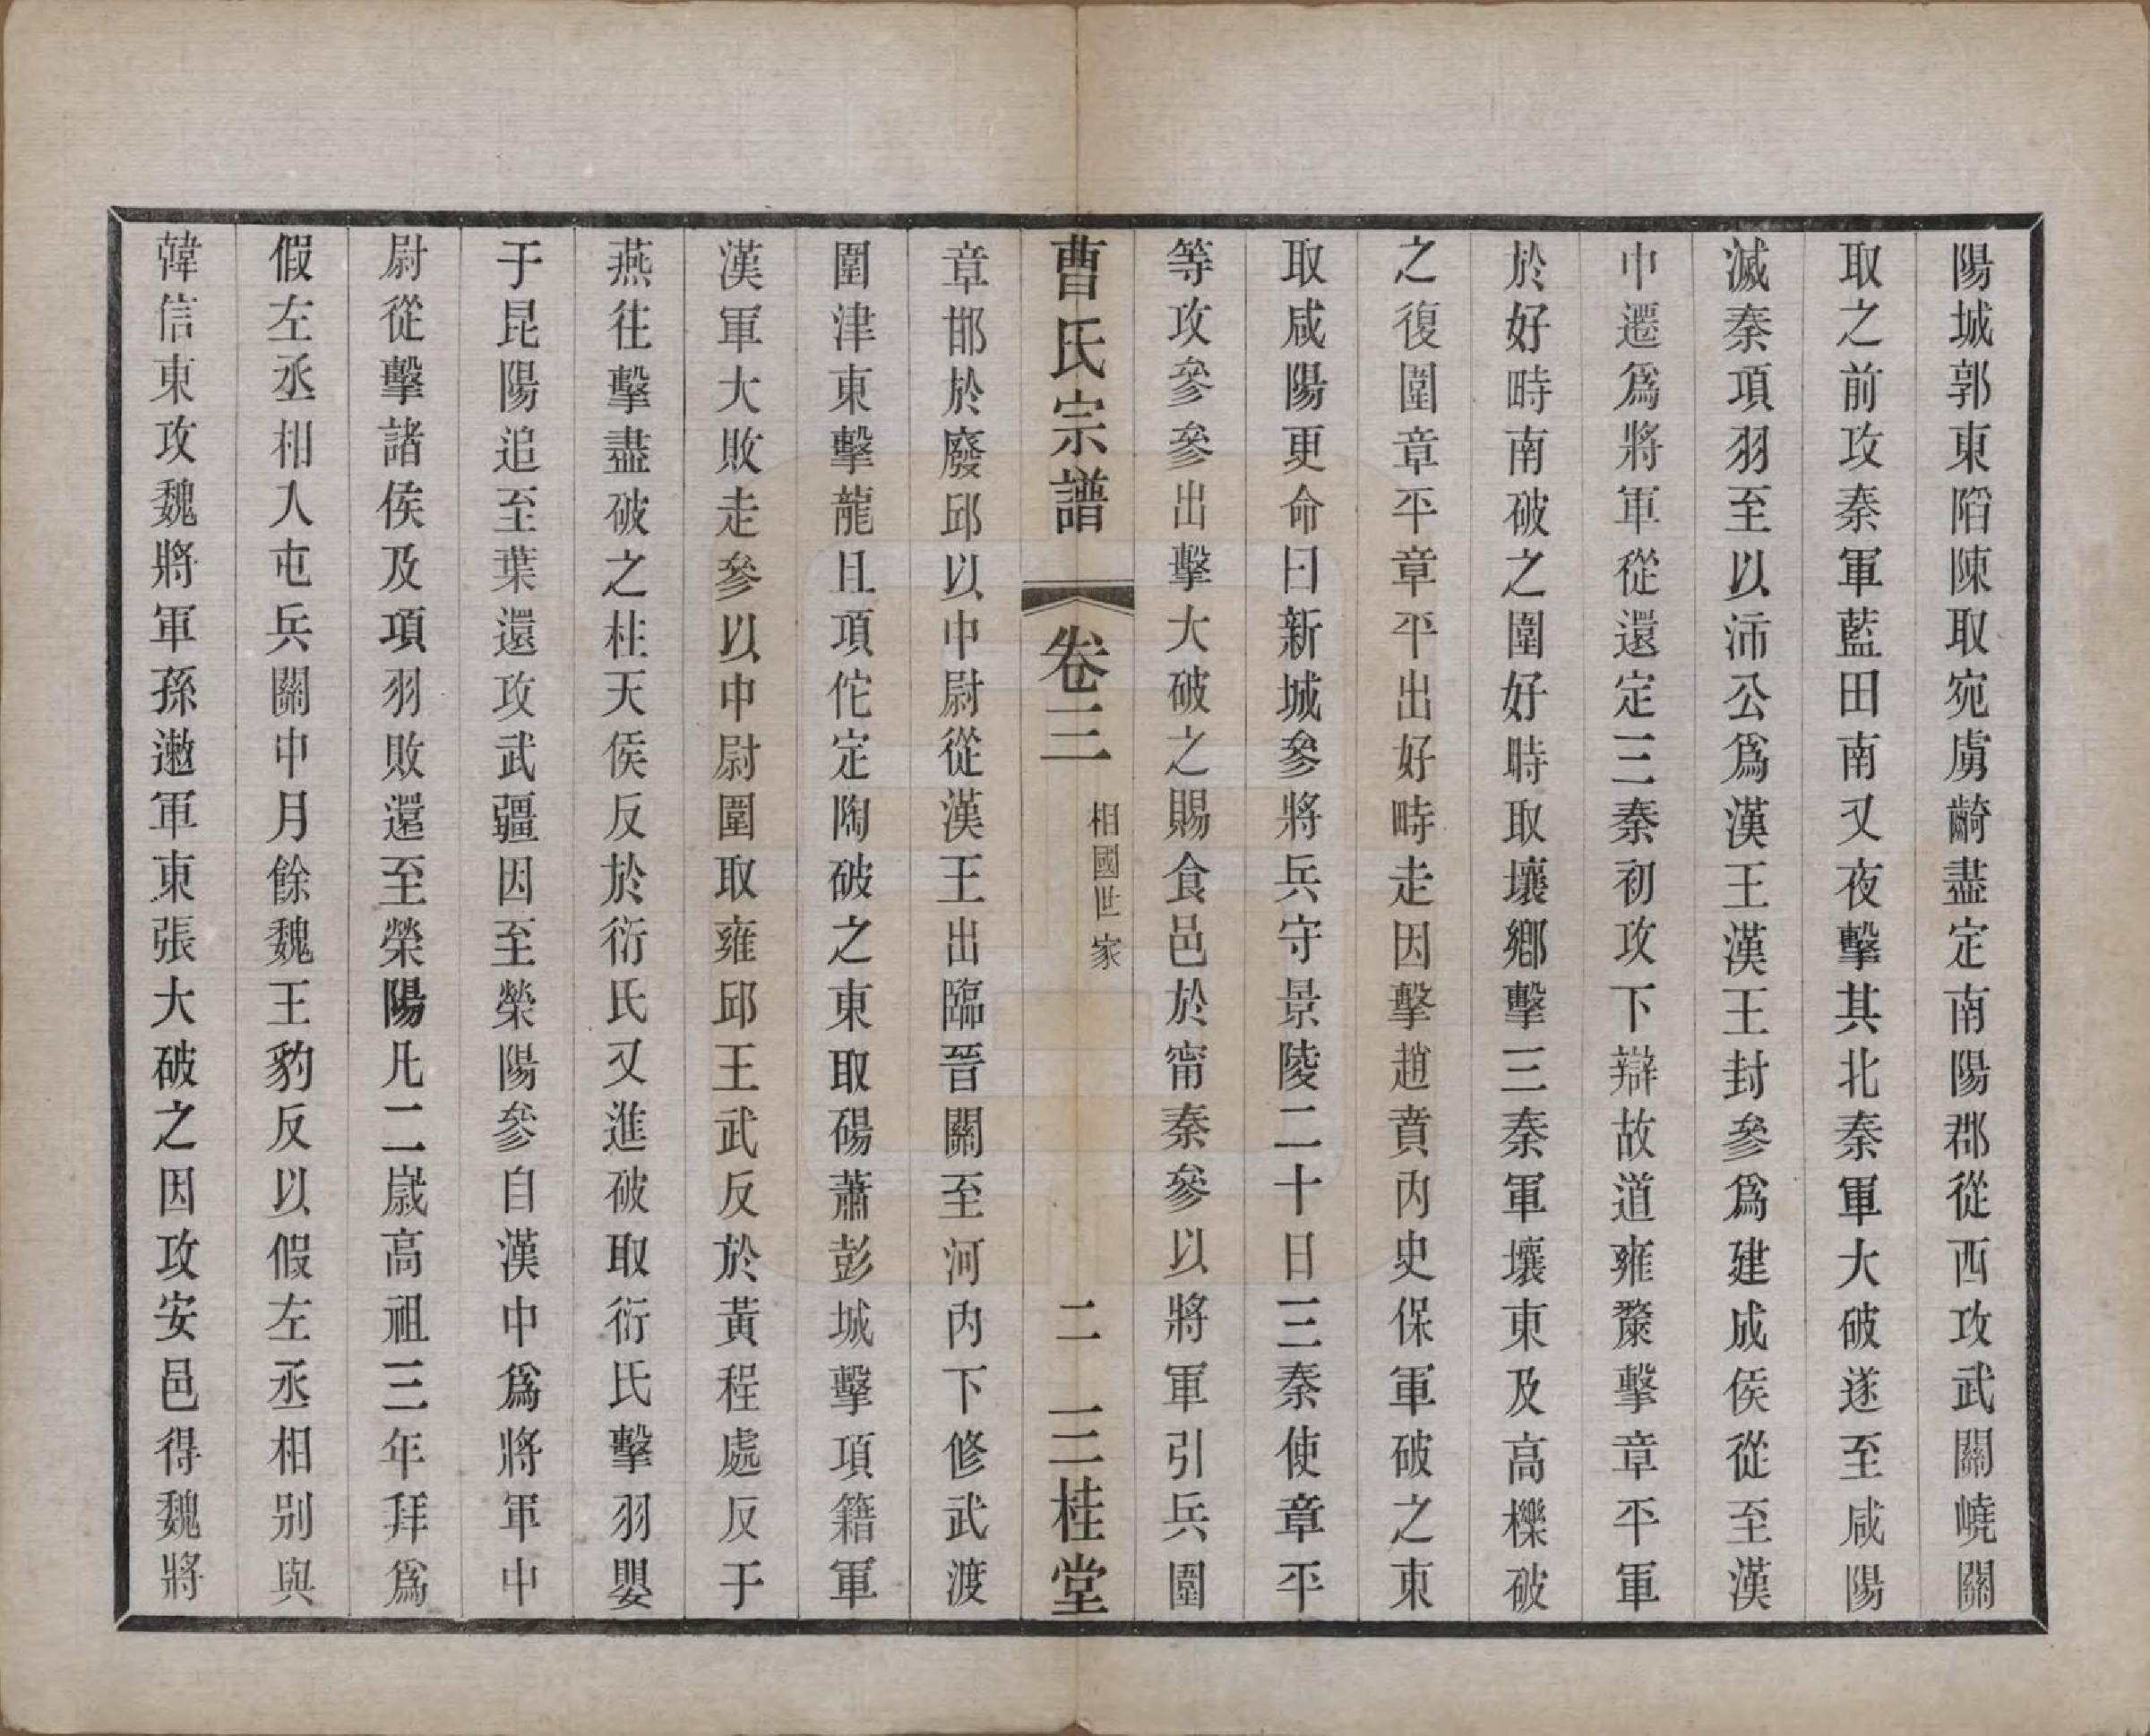 陽城郭東陷陳取宛虜齮盡定南陽郡從西攻武關嶢關
取之前攻秦軍藍田南又夜擊其北秦軍大破遂至咸陽
滅秦項羽至以沛公爲漢王漢王封參爲建成侯從至漢
中遷爲將軍從還定三秦初攻下辯故道雍斄擊章平軍
於好畤南破之圍好畤取壤鄉擊三秦軍壤東及高櫟破
之復圍章平章平出好畤走因擊趙賁內史保軍破之東
取咸陽更命曰新城參將兵守景陵二十日三秦使章平
等攻參參出擊大破之賜食邑於甯秦參以將軍引兵圍
曹氏宗譜 卷三 相國世家 二 三桂堂
章邯於廢邱以中尉從漢王出臨晉關至河內下修武渡
圍津東擊龍且項佗定陶破之東取碭蕭彭城擊項籍軍
漢軍大敗走參以中尉圍取雍邱王武反於黃程處反于
燕往擊盡破之柱天侯反於衍氏又進破取衍氏擊羽嬰
于昆陽追至葉還攻武疆因至滎陽參自漢中爲將軍中
尉從擊諸侯及項羽敗還至滎陽凡二歲高祖三年拜爲
假左丞相入屯兵關中月餘魏王豹反以假左丞相別與
韓信東攻魏將軍孫遬軍東張大破之因攻安邑得魏將